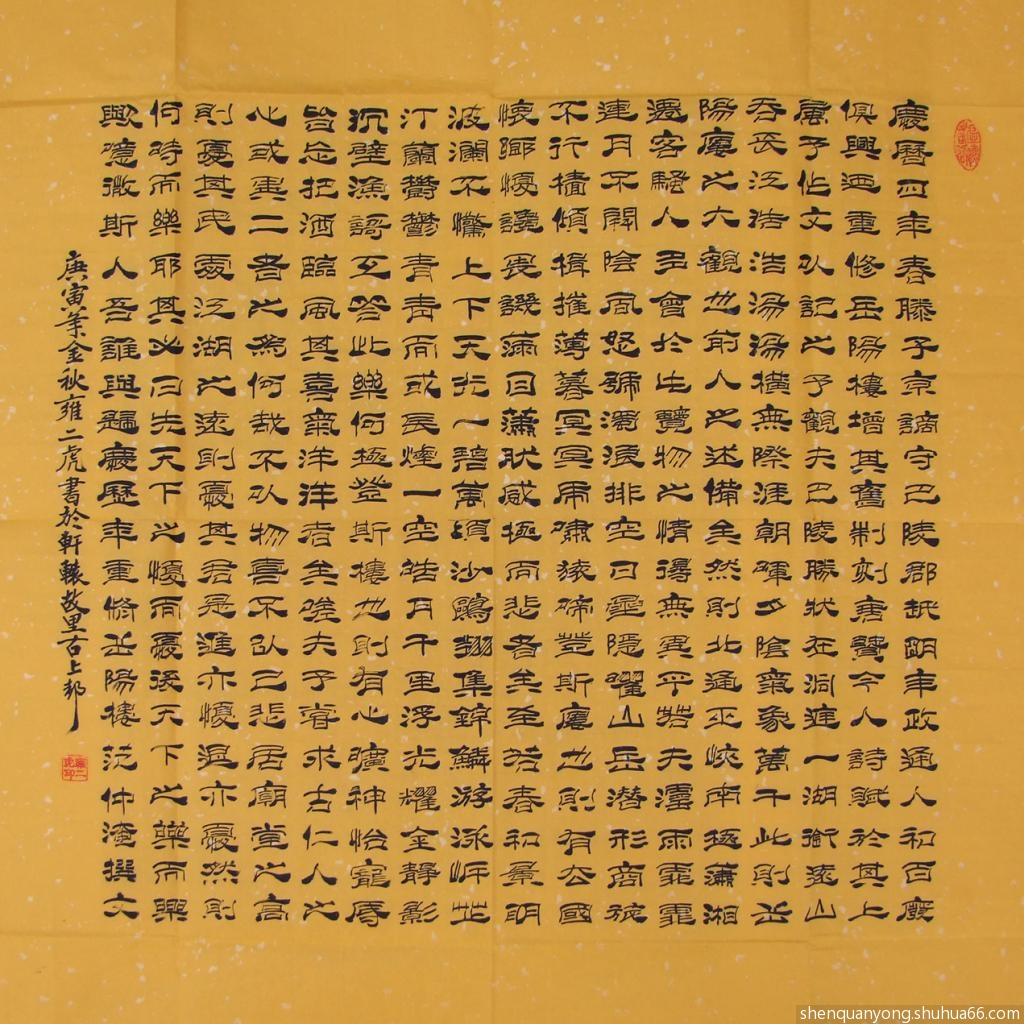 慶曆四年春滕子京謫守巴陵郡越明年政通人和百廢
俱興迺重修岳陽樓增其舊制刻唐賢今人詩賦於其上
屬予作文以記之予觀夫巴陵勝狀在洞庭一湖銜遠山
吞長江浩浩湯湯橫無際涯朝暉夕陰氣象萬千此則岳
陽樓之大觀也前人之述備矣然則北通巫峽南極瀟湘
遷客騷人多會於此覽物之情得無異乎若夫霪雨霏霏
連月不開陰風怒號濁浪排空日星隱曜山岳潛形商旅
不行檣傾楫摧薄暮冥冥虎嘯猿啼登斯樓也則有去國
懷鄉憂讒畏譏滿目蕭肰感極而悲者矣至若春和景明
波瀾不驚上下天光一碧萬頃沙鷗翔集錦鱗游泳岸芷
汀蘭鬱鬱青青而或長煙一空皓月千里浮光耀金靜影
沉璧漁謌互答此樂何極登斯樓也則有心曠神怡寵辱
皆忘把酒臨風其喜氣洋洋者矣嗟夫予嘗求古仁人之
心或異二者之為何哉不以物喜不以己悲居廟堂之高
則憂其民處江湖之遠則憂其君是進亦憂退亦憂然則
何時而樂耶其必曰先天下之憂而憂後天下之樂而興
歟噫微斯人吾誰與歸慶歷年重修岳陽樓范仲淹撰文
庚寅年金秋雍二虎書於軒轅故里古上邽
雍二虎印
shenquanyong.shuhua66.com